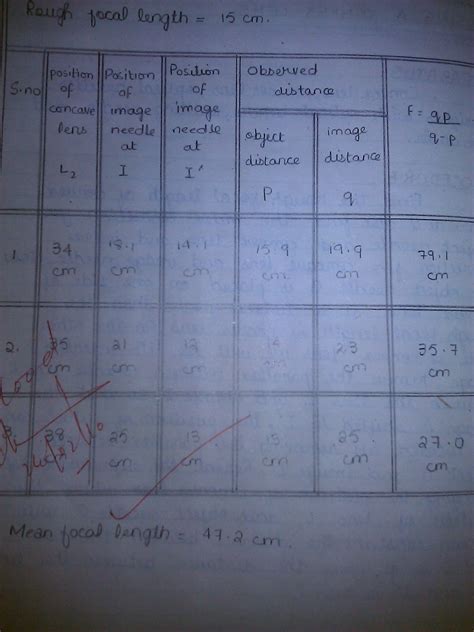 Rough focal length = 15 cm.
S.no
position of concave lens L₂
Position of image needle at I
Position of image needle at I'
Observed distance
object distance P
image distance q
F = qp / q-p
1.
34 cm
18.1 cm
14.1 cm
15.9 cm
19.9 cm
79.1 cm
2.
35 cm
21 cm
12 cm
14 cm
23 cm
35.7 cm
38 cm
25 cm
13 cm
13 cm
25 cm
27.0 cm
Mean focal length = 47.2 cm.